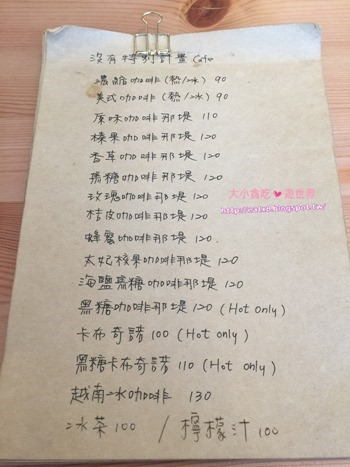 沒有特別計畫 Cafe
濃縮咖啡(熱/冰) 90
美式咖啡(熱/冰) 90
原味咖啡那堤 110
榛果咖啡那堤 120
香草咖啡那堤 120
焦糖咖啡那堤 120
玫瑰咖啡那堤 120
大小貪吃❤遊世界
http://eatx8.blogspot.tw/
桂皮咖啡那堤 120
蜂蜜咖啡那堤 120.
太妃核果咖啡那堤 120
海鹽焦糖咖啡那堤 120
黑糖咖啡那堤 120 (Hot only)
卡布奇諾 100 (Hot only)
黑糖卡布奇諾 110 (Hot only)
越南冰咖啡 130
冰茶 100 / 檸檬汁 100